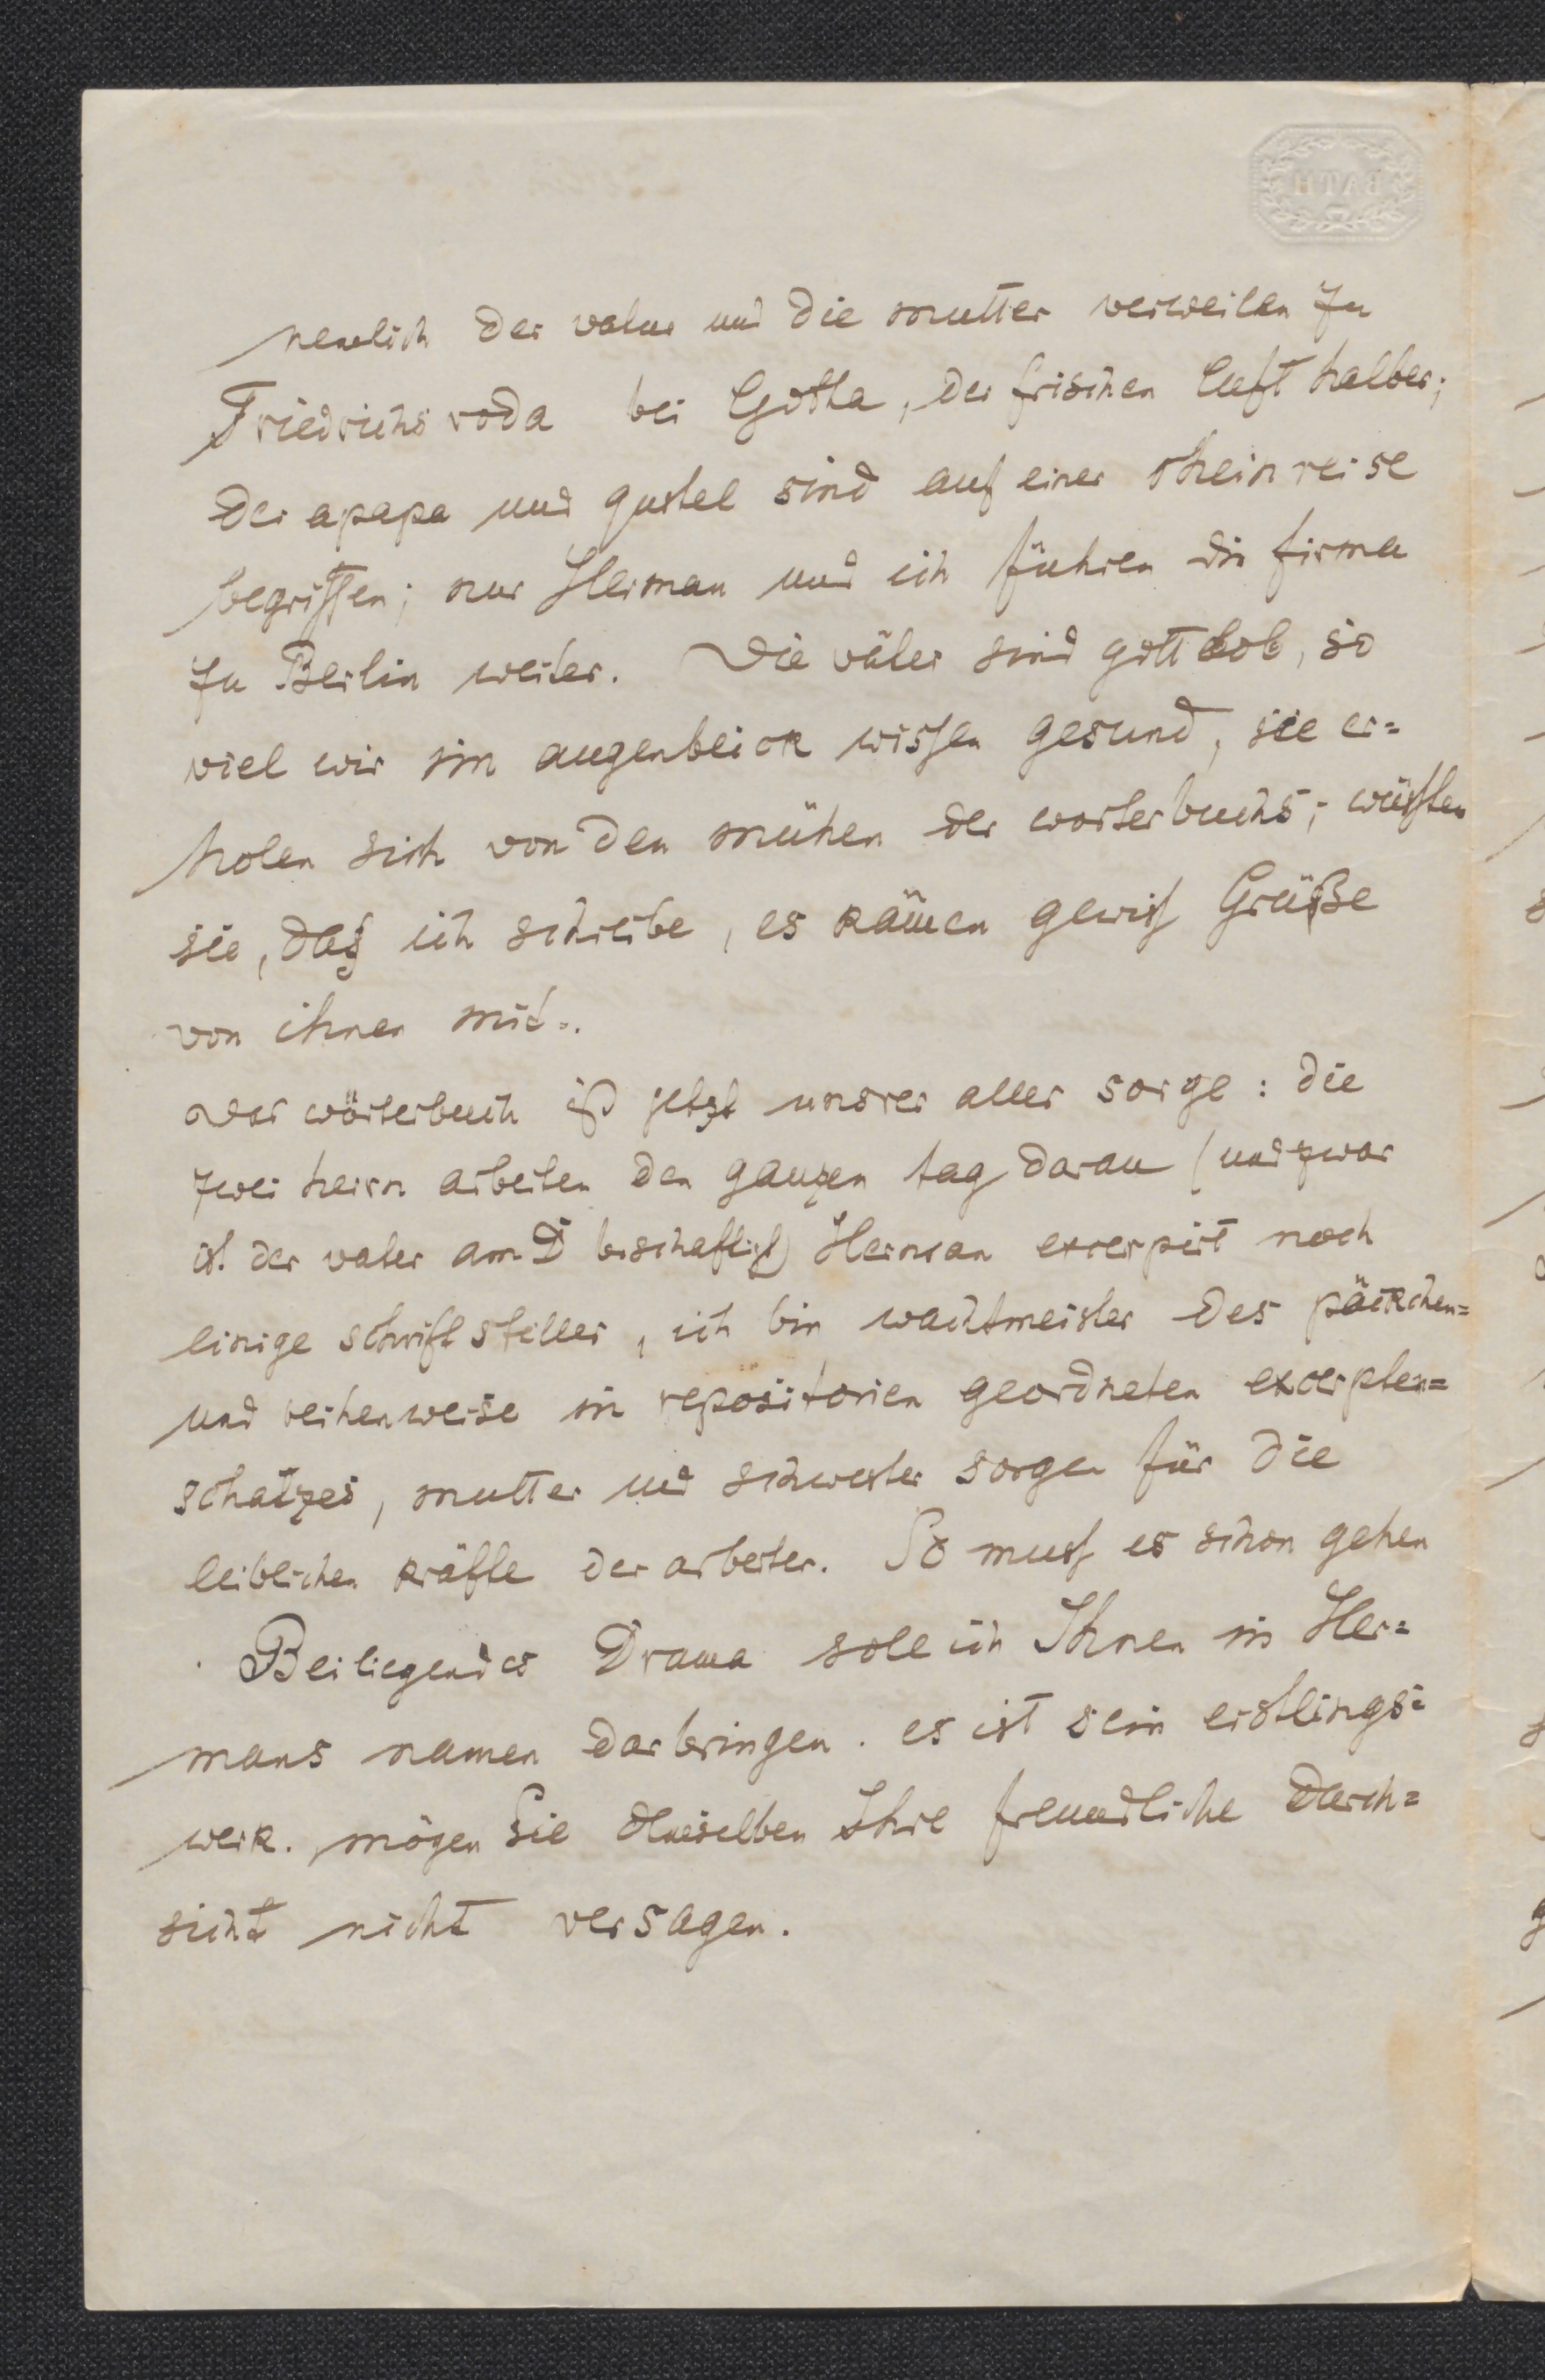 BATH
nemlich der vater und die mutter verweilen zu
Friedrichsroda bei Gotha, der frischen luft halber;
der apapa und gustel sind auf einer rheinreise
begriffen; nur Herman und ich führen die firma
zu Berlin weiter. Die väter sind gottlob, so
viel wir im augenblick wissen gesund, sie er=
holen sich von den mühen des wörterbuchs; wüsten
sie, daß ich schreibe, es kämen gewiss Grüße
von ihnen mit.
Das wörterbuch ist jetzt unsrer aller sorge: die
zwei herrn arbeiten den ganzen tag daran (und zwar
ist der vater am D beschäftigt) Herman excerpirt noch
einige schriftsteller, ich bin wachtmeister des päckchen=
und reihenweise in repositorien geordneten excerpten=
schatzes, mutter und schwester sorgen für die
leiblichen kräfte der arbeiter. So muss es schon gehen
Beiliegendes Drama soll ich Ihnen in Her=
mans namen darbringen. es ist sein erstlings=
werk. mögen Sie demselben Ihre freundliche Durch=
sicht nicht versagen.